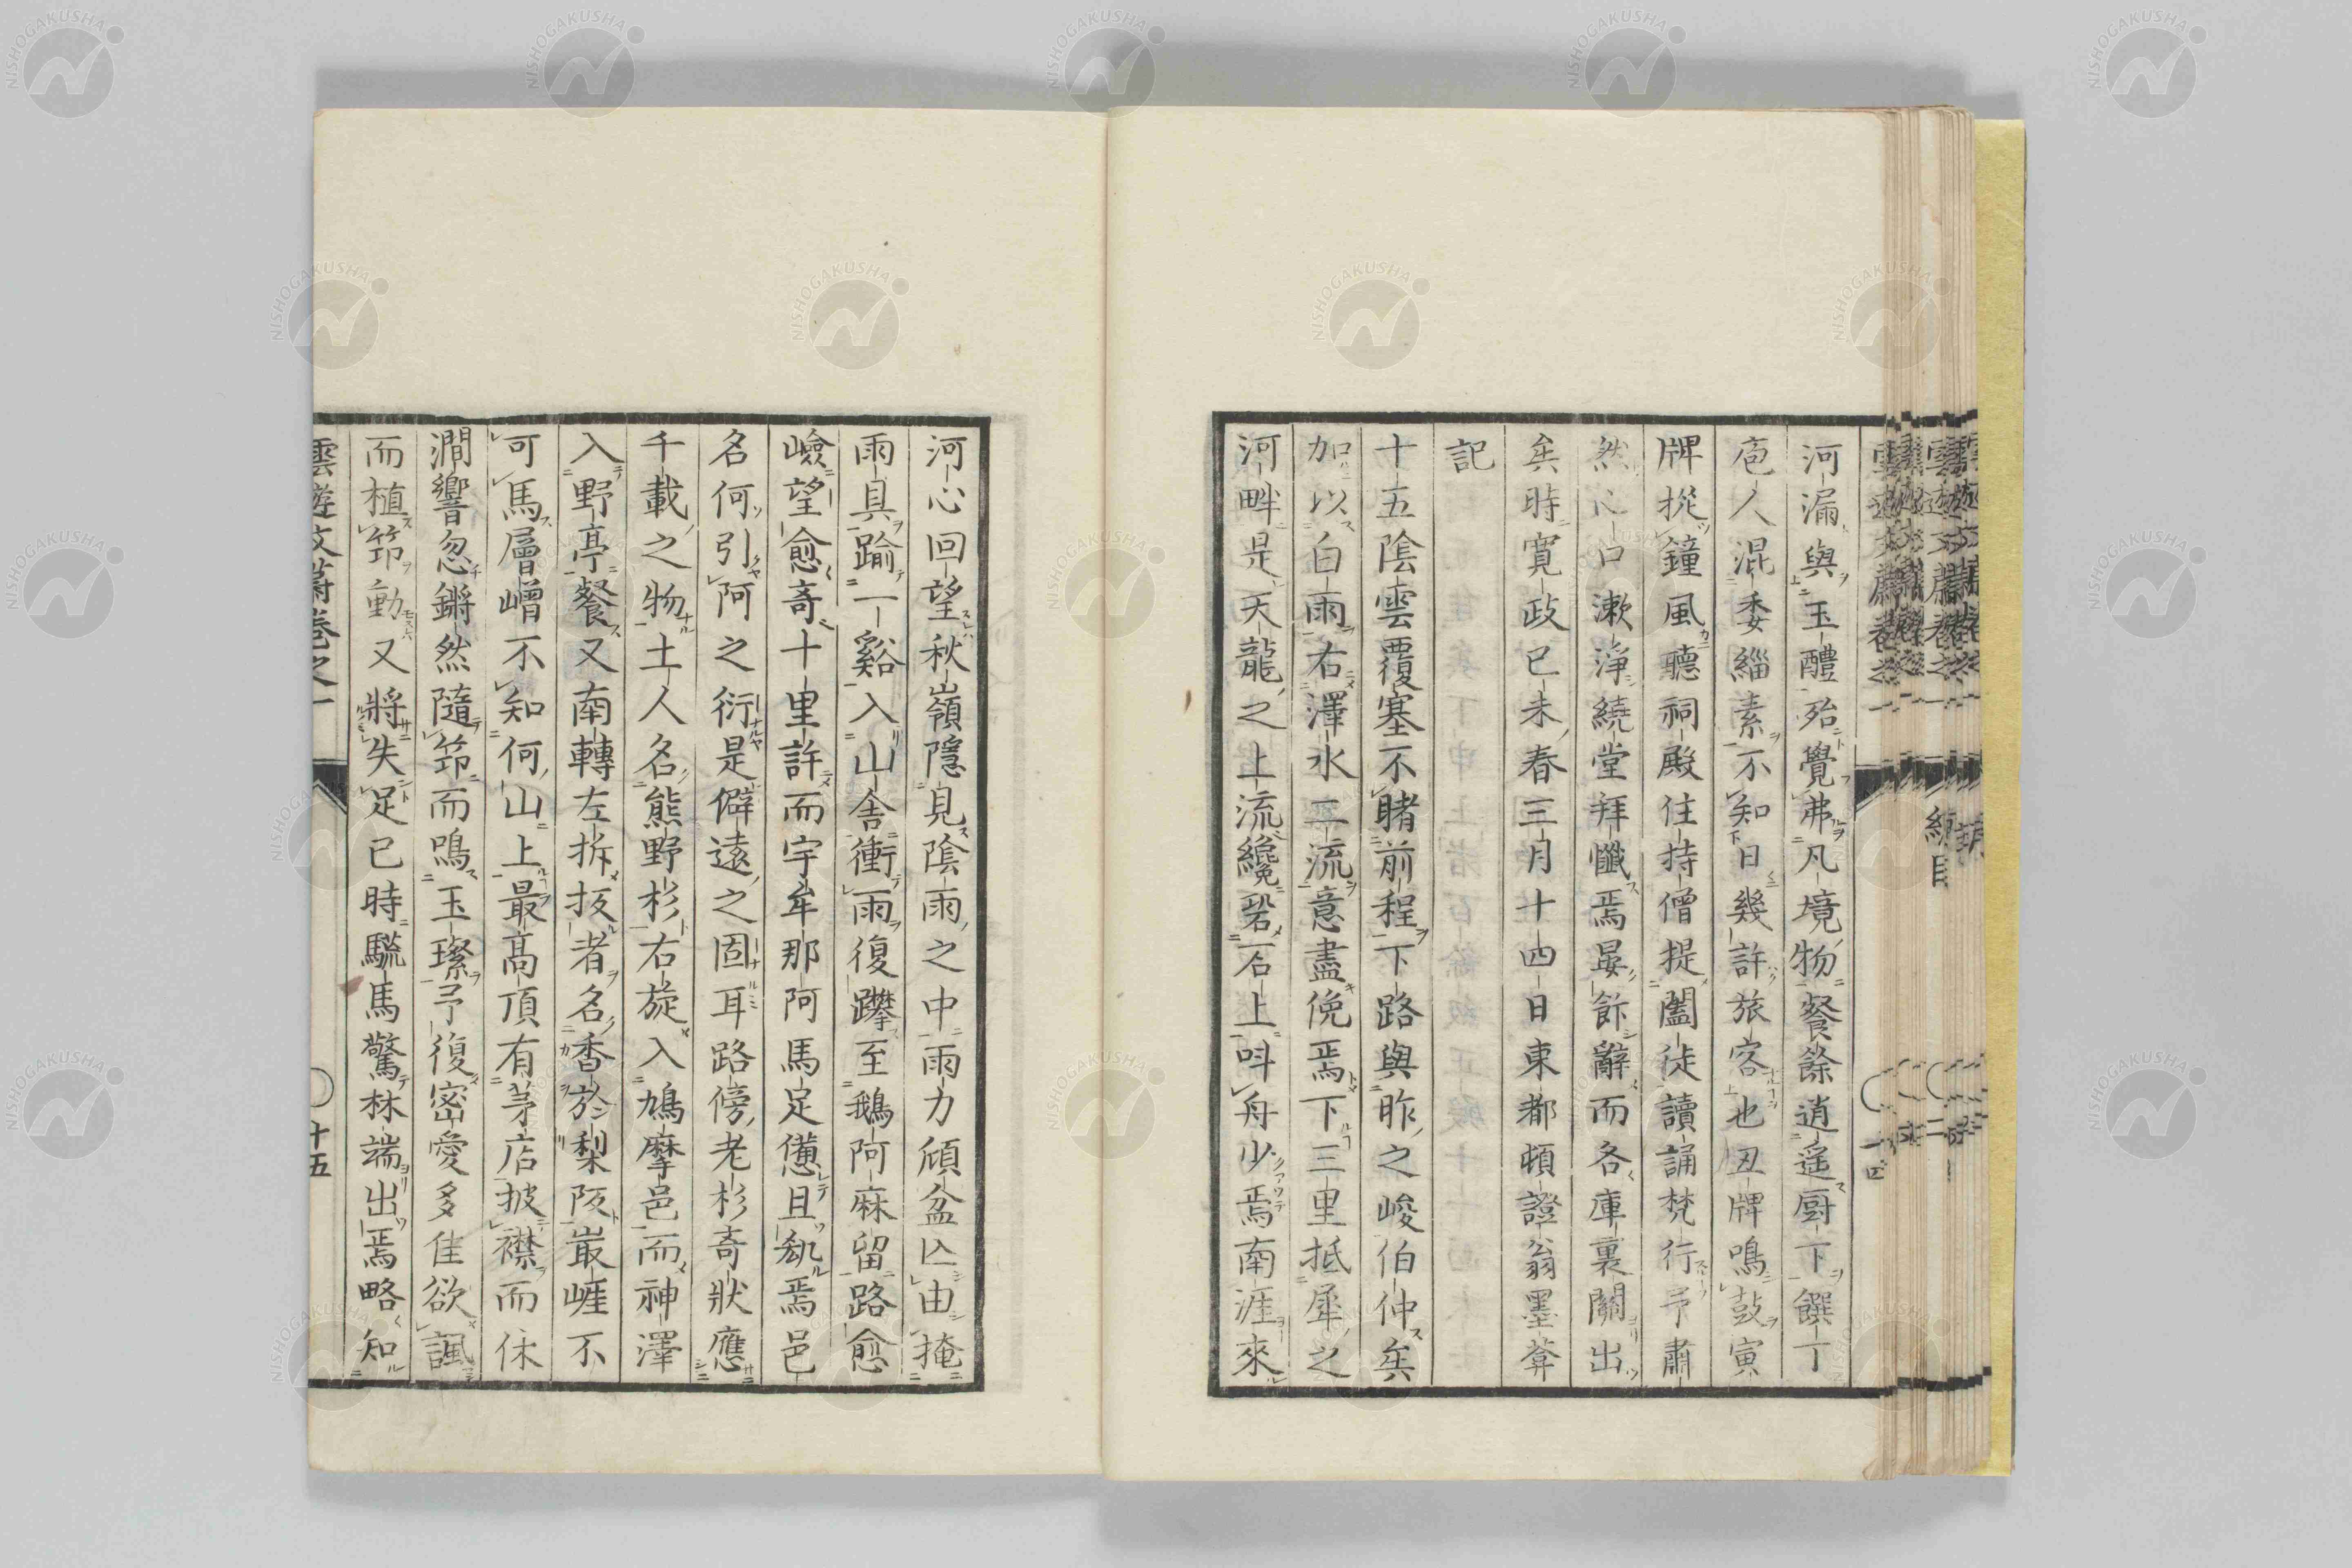 河漏與玉醴殆覺弗凡境物餐餘逍遥厨下饌丁
庖人混委緇素不知日幾許旅客也丑牌鳴鼓寅
牌摐鐘風聽祠殿住持僧提闔徒讀誦梵行予肅
然心口漱淨繞堂拜懺焉晏飭辭而各庫裏關出
矣時寛政已未春三月十四日東都頓證翁墨葊
記
十五陰雲覆塞不睹前程下路與昨之峻伯仲矣
加以白雨右澤水二流意盡俛焉下三里抵犀之
河畔是天龍之上流纔砻石上呌舟少焉南涯來
河心回望秋嶺隱見陰雨之中雨力傾盆亾由掩
雨具踰一谿入山舎衝雨復躋至鵝阿麻留路愈
嶮望愈奇十里許而宇牟那阿馬足憊且飢焉邑
名何引阿之衍是僻遠之固耳路傍老杉奇狀應
千載之物土人名熊野杉右旋入鳩摩邑而神澤
入野亭餐又南轉左拆扳者名香於梨阪最崕不
可馬層嶒不知何山上最高頂有茅店披襟而休
澗響忽鏘然隨筇而鳴玉璨予復密愛多佳欲諷
而植筇動又將失足已時驫馬驚林端出焉略知
雲遊文蔚卷之一
十五
NISHOGAKUSHA